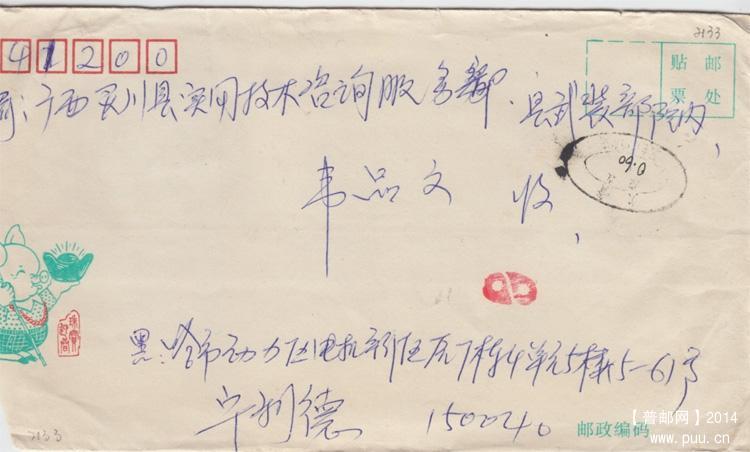 2133
41200
贴 邮
票 处
广西灵川县实用技术咨询服务部、县武装部院内、
韦品文 收、
0.60
黑:哈市动力区电机新区
5-61号
德 150040
邮政编码
2133
【普邮网】2014
www.puu.cn